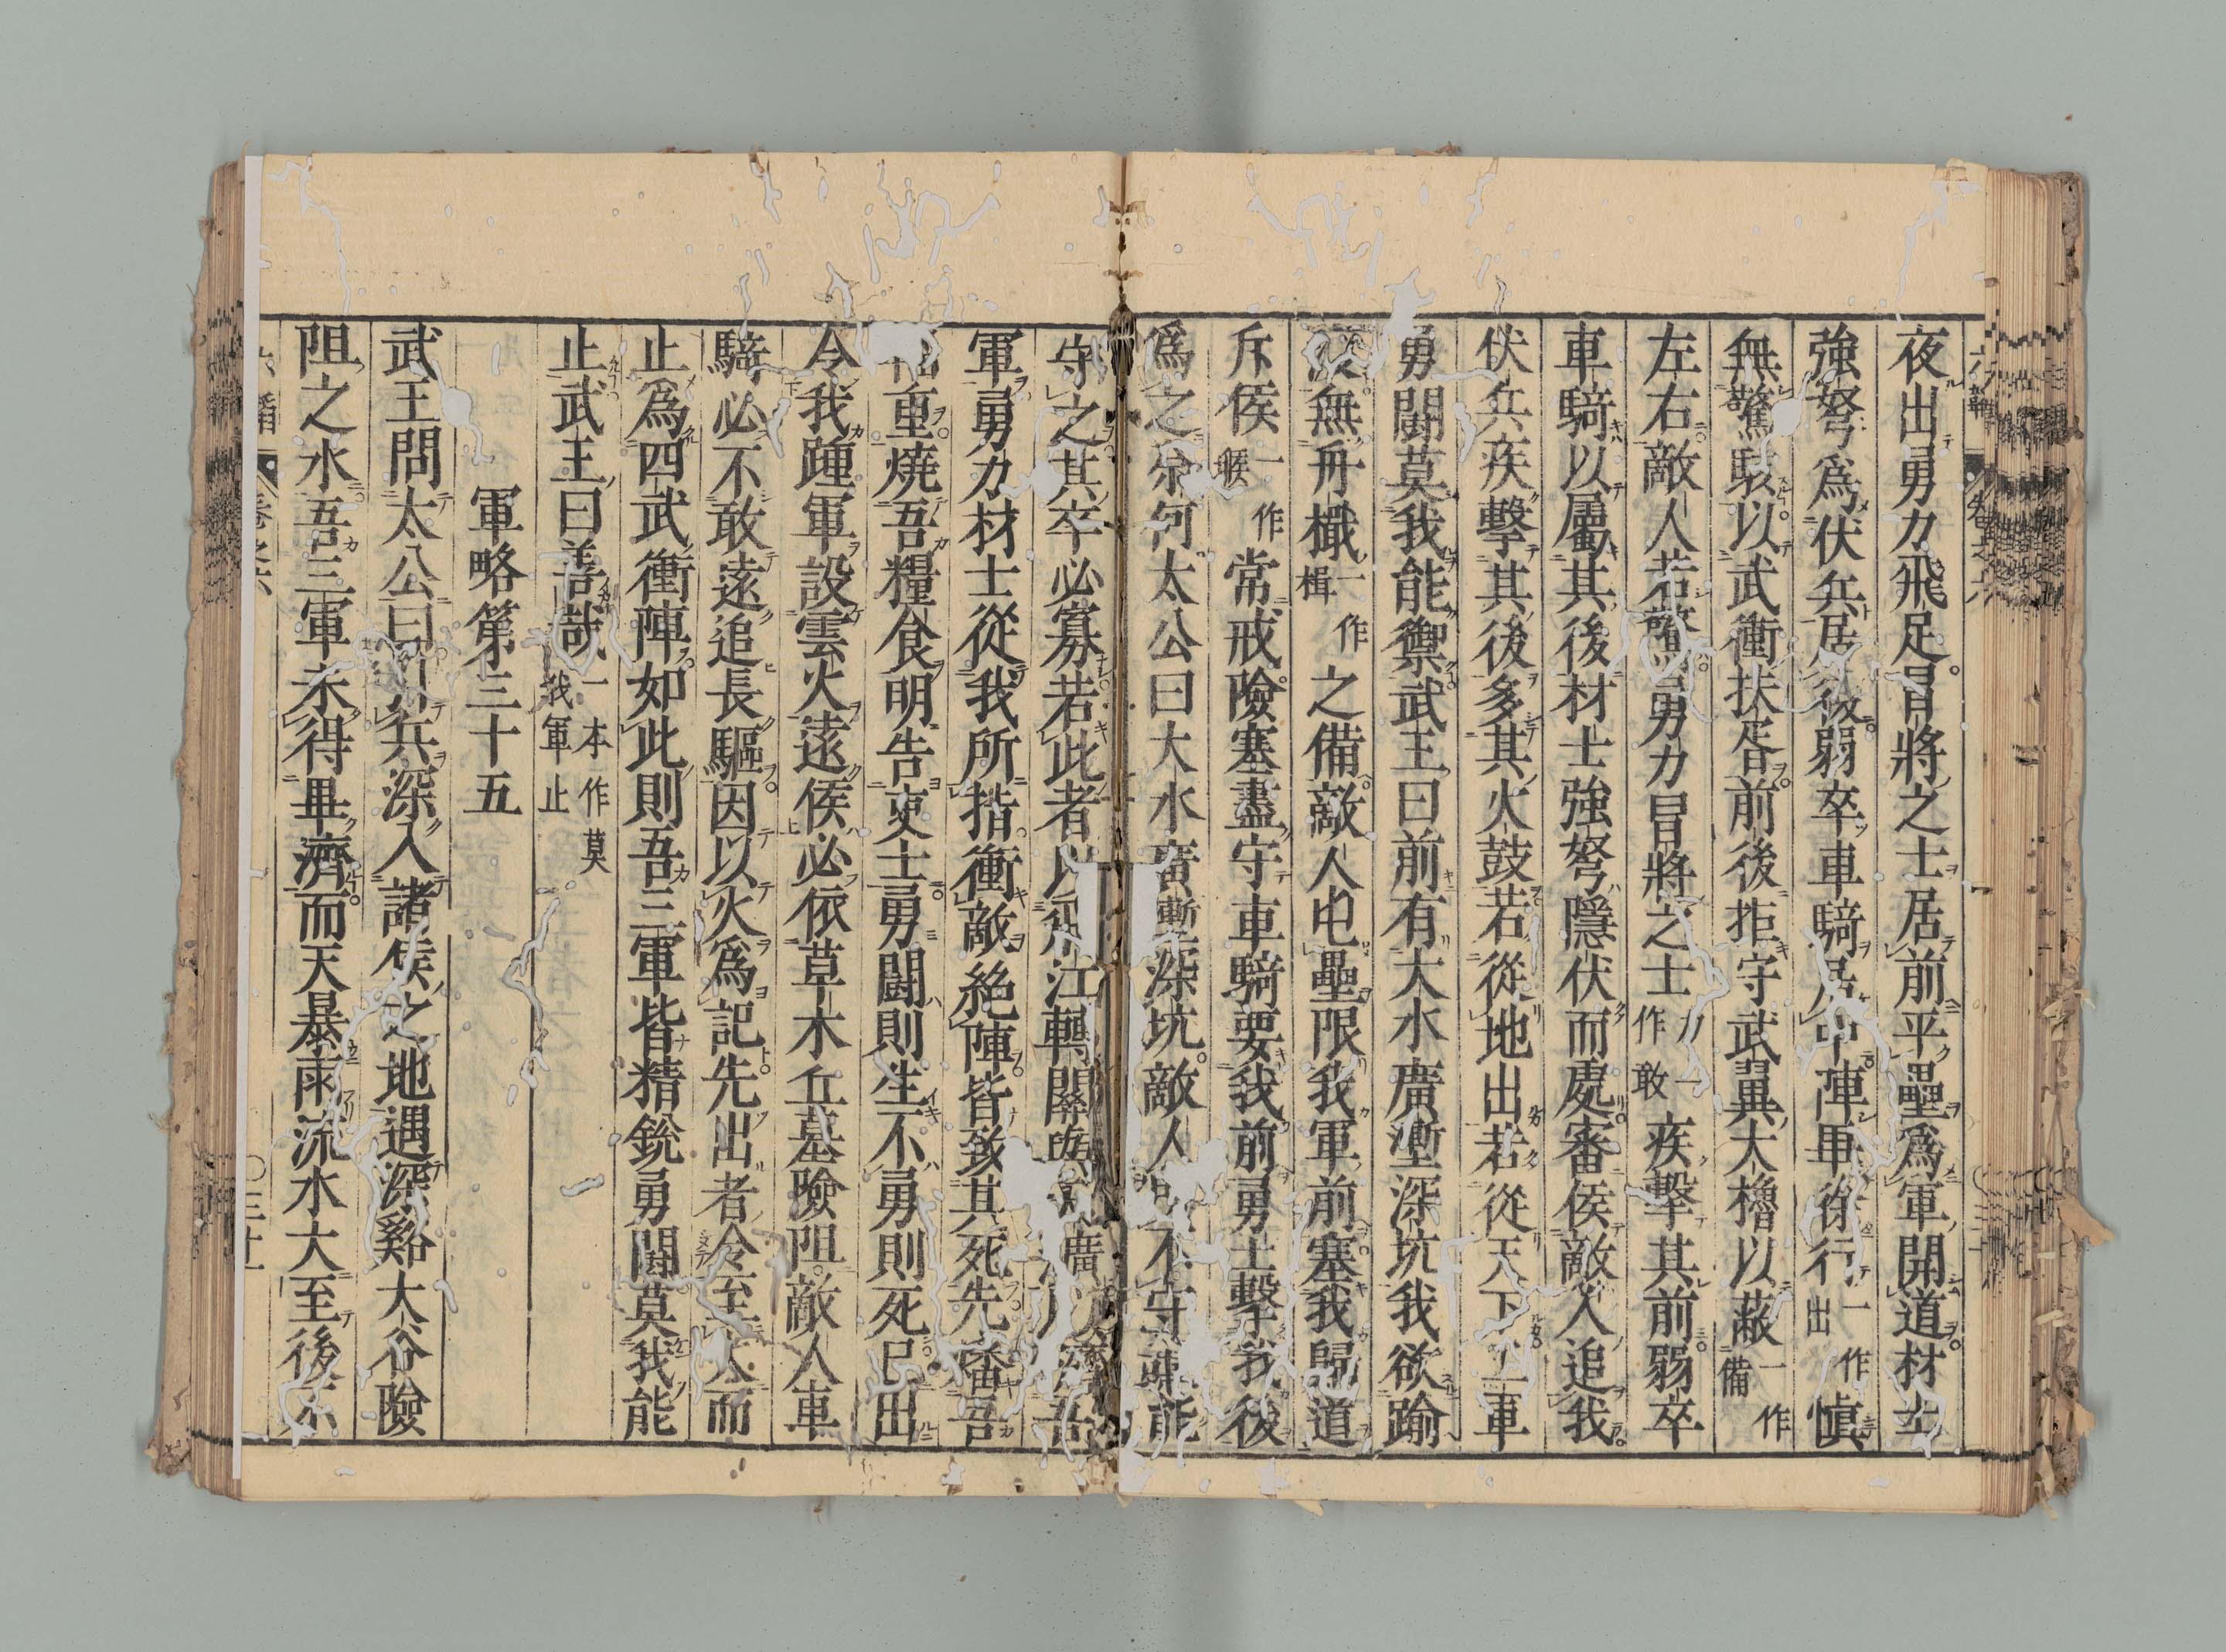 夜出勇力飛足冒將之士居前平壘爲軍開道材士
強弩爲伏兵居後弱卒車騎居中陣畢徐行一作出愼
無驚駭以武衝扶胥前後拒守武翼大櫓以蔽一作備
左右敵人若驚勇力冒將之士疾擊其前弱卒
車騎以屬其後材士強弩隱伏而處審候敵人追我
伏兵疾擊其後多其火鼓若從地出若從天下三軍
勇鬪莫我能禦武王曰前有大水廣壍深坑我欲踰
渡無舟檝一作楫之備敵人屯壘限我軍前塞我歸道
斥候一作堠常戒險塞盡守車騎要我前勇士擊我後
爲之奈何太公曰大水廣壍深坑敵人所不守或能
守之其卒必寡若此者以飛江轉關與天潢以濟吾
軍勇力材士從我所指衝敵絕陣皆致其死先燔吾
輜重燒吾糧食明告吏士勇鬪則生不勇則死已出
令我踵軍設雲火遠候必依草木丘墓險阻敵人車
騎必不敢遠追長驅因以火爲記先出者令至火而
止爲四武衝陣如此則吾三軍皆精銳勇鬪莫我能
止武王曰善哉一本作莫我軍止
軍略第三十五
武王問太公曰引兵深入諸侯之地遇深谿大谷險
阻之水吾三軍未得畢濟而天暴雨流水大至後不